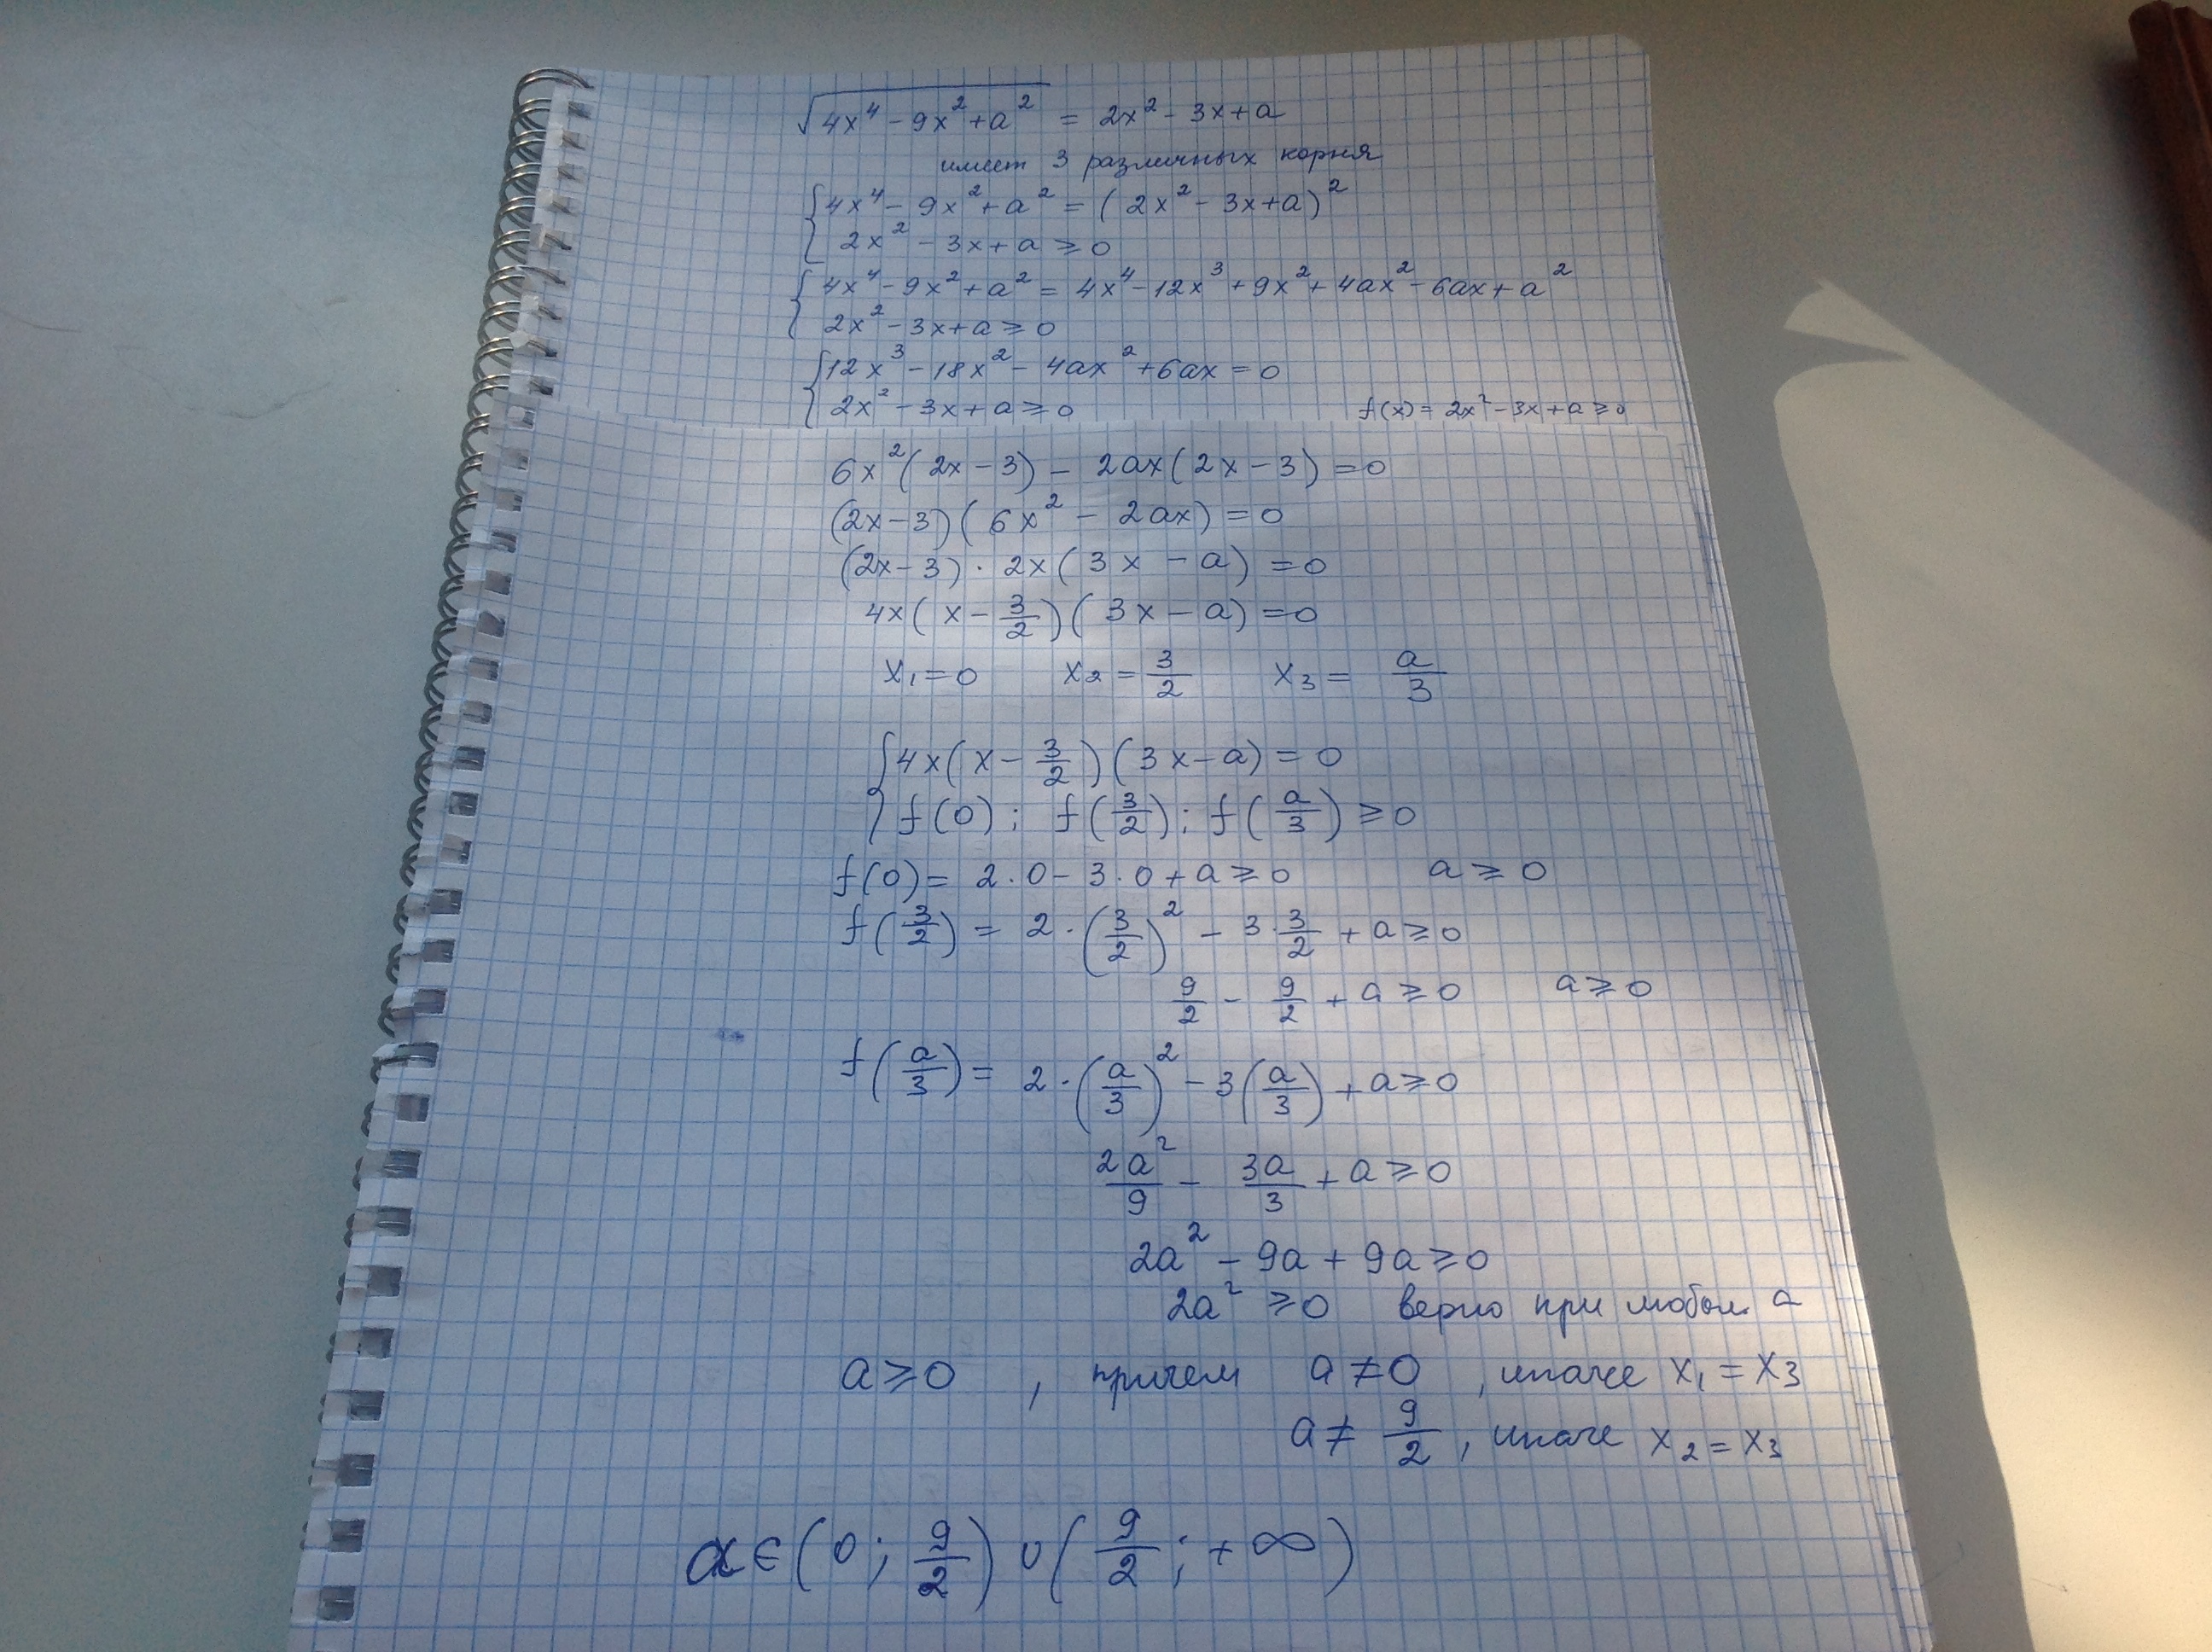 √(4x⁴ - 9x² + a²) = 2x² - 3x + a
имеет 3 различных корня
{ 4x⁴ - 9x² + a² = (2x² - 3x + a)²
2x² - 3x + a ≥ 0
{ 4x⁴ - 9x² + a² = 4x⁴ - 12x³ + 9x² + 4ax² - 6ax + a²
2x² - 3x + a ≥ 0
{ 12x³ - 18x² - 4ax² + 6ax = 0
2x² - 3x + a ≥ 0 f(x) = 2x² - 3x + a ≥ 0
6x²(2x - 3) - 2ax(2x - 3) = 0
(2x - 3)(6x² - 2ax) = 0
(2x - 3) · 2x(3x - a) = 0
4x(x - 3/2)(3x - a) = 0
x₁ = 0 x₂ = 3/2 x₃ = a/3
{ 4x(x - 3/2)(3x - a) = 0
f(0); f(3/2); f(a/3) ≥ 0
f(0) = 2·0 - 3·0 + a ≥ 0 a ≥ 0
f(3/2) = 2·(3/2)² - 3·3/2 + a ≥ 0
9/2 - 9/2 + a ≥ 0 a ≥ 0
f(a/3) = 2·(a/3)² - 3(a/3) + a ≥ 0
2a²/9 - 3a/3 + a ≥ 0
2a² - 9a + 9a ≥ 0
2a² ≥ 0 верно при любом a
a ≥ 0, причем a ≠ 0, иначе x₁ = x₃
a ≠ 9/2, иначе x₂ = x₃
a ∈ (0; 9/2) ∪ (9/2; +∞)